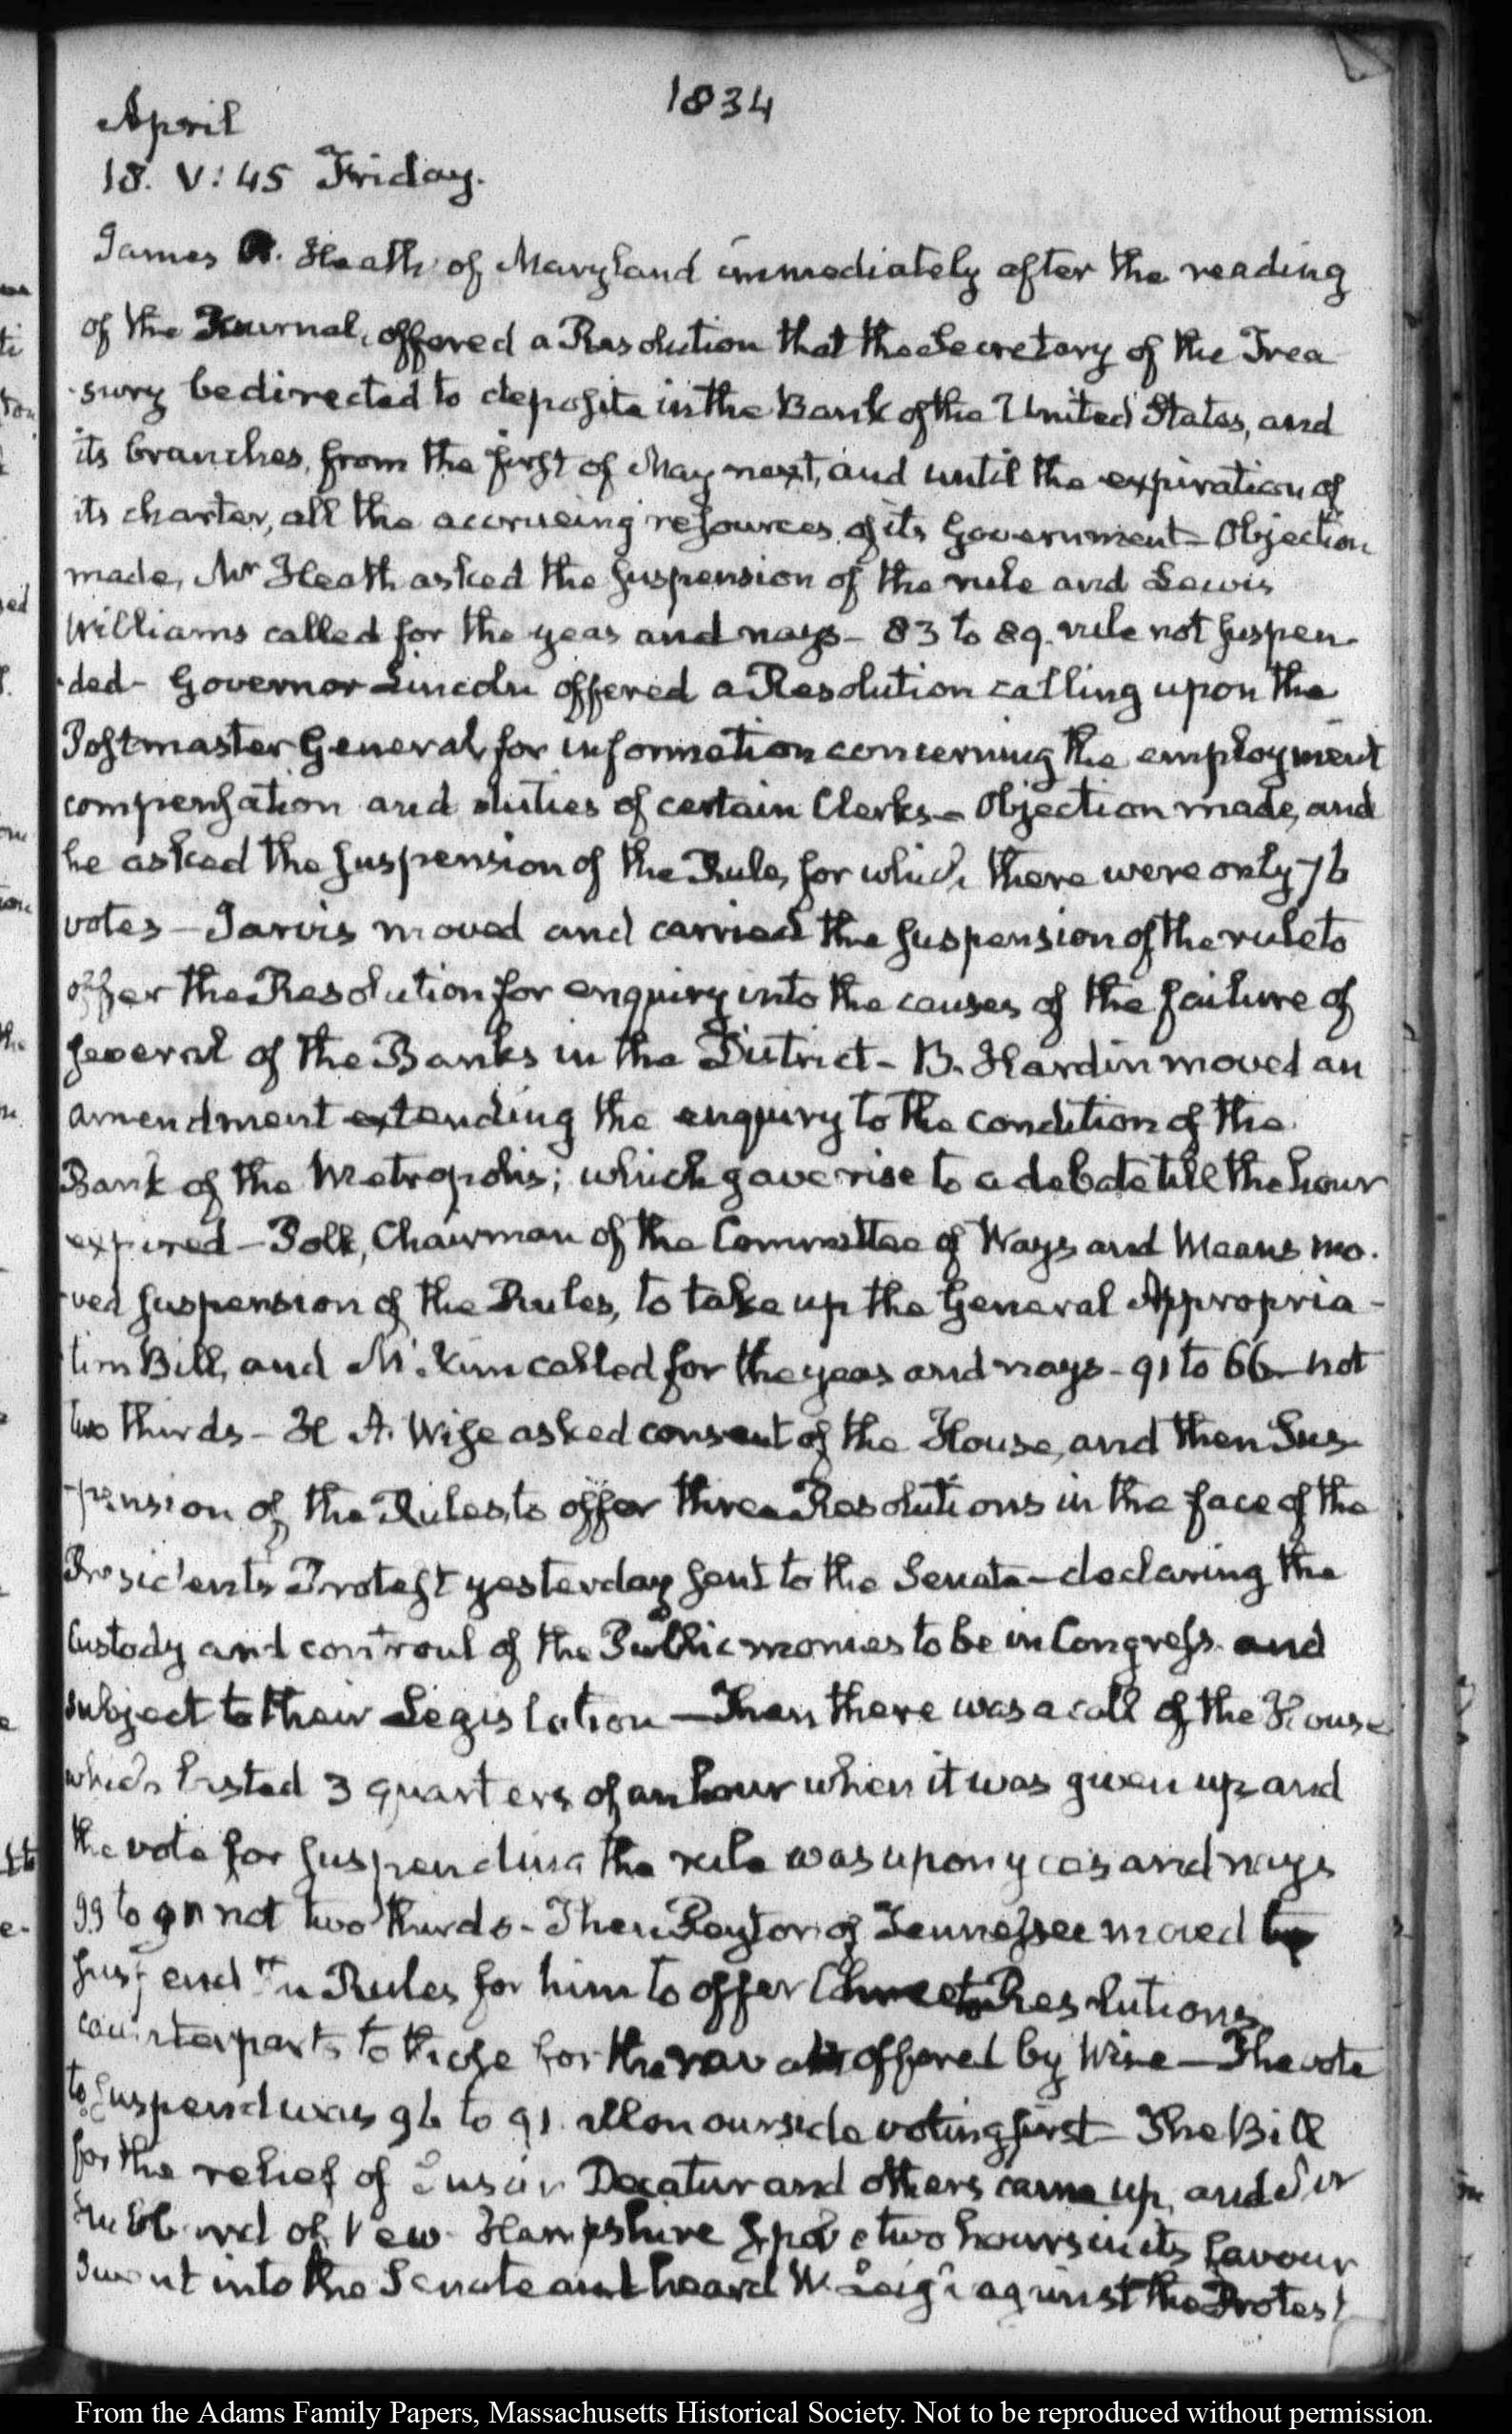 1834
April
18. V:45 Friday.
James P. Heath of Maryland immediately after the reading
of the Journal, offered a Resolution that the Secretary of the Trea
-sury be directed to deposite in the Bank of the United States, and
its branches, from the first of May next, and until the expiration of
its charter, all the accrueing resources of its Government - Objection
made, Mr Heath asked the suspension of the rule and Lewis
Williams called for the yeas and nays - 83 to 89. rule not suspen-
-ded - Governor Lincoln offered a Resolution calling upon the
Postmaster General, for information concerning the employment
compensation and duties of certain Clerks - Objection made, and
he asked the suspension of the Rule, for which there were only 76
votes - Jarvis moved and carried the suspension of the rule to
offer the Resolution for enquiry into the causes of the failure of
several of the Banks in the District - B. Hardin moved an
amendment extending the enquiry to the condition of the
Bank of the Metropolis; which gave rise to a debate till the hour
expired - Polk, Chairman of the Committee of Ways and Means mo-
-ved suspension of the Rules, to take up the General Appropria-
tion Bill, and McKim called for the yeas and nays - 91 to 66 - not
two thirds - H A. Wise asked consent of the House, and then Sus-
-pension of the Rules, to offer three Resolutions in the face of the
Presidents Protest yesterday sent to the Senate - declaring the
Custody and controul of the Public monies to be in Congress and
subject to their Legislation - Then there was a call of the House
which lasted 3 quarters of an hour when it was given up and
the vote for suspending the rule was upon yeas and nays
99 to not two thirds - Then Peyton of Tennessee moved to
suspend the Rules for him to offer Resolutions,
counterparts to those offered by Wise - The vote
to suspend was 96 to 91. all on our side voting first - The Bill
for the relief of Susan Decatur and others came up, and
Hubbard of New-Hampshire spoke two hours in its favour
I went into the Senate and heard W. Leigh against the Protest
From the Adams Family Papers, Massachusetts Historical Society. Not to be reproduced without permission.